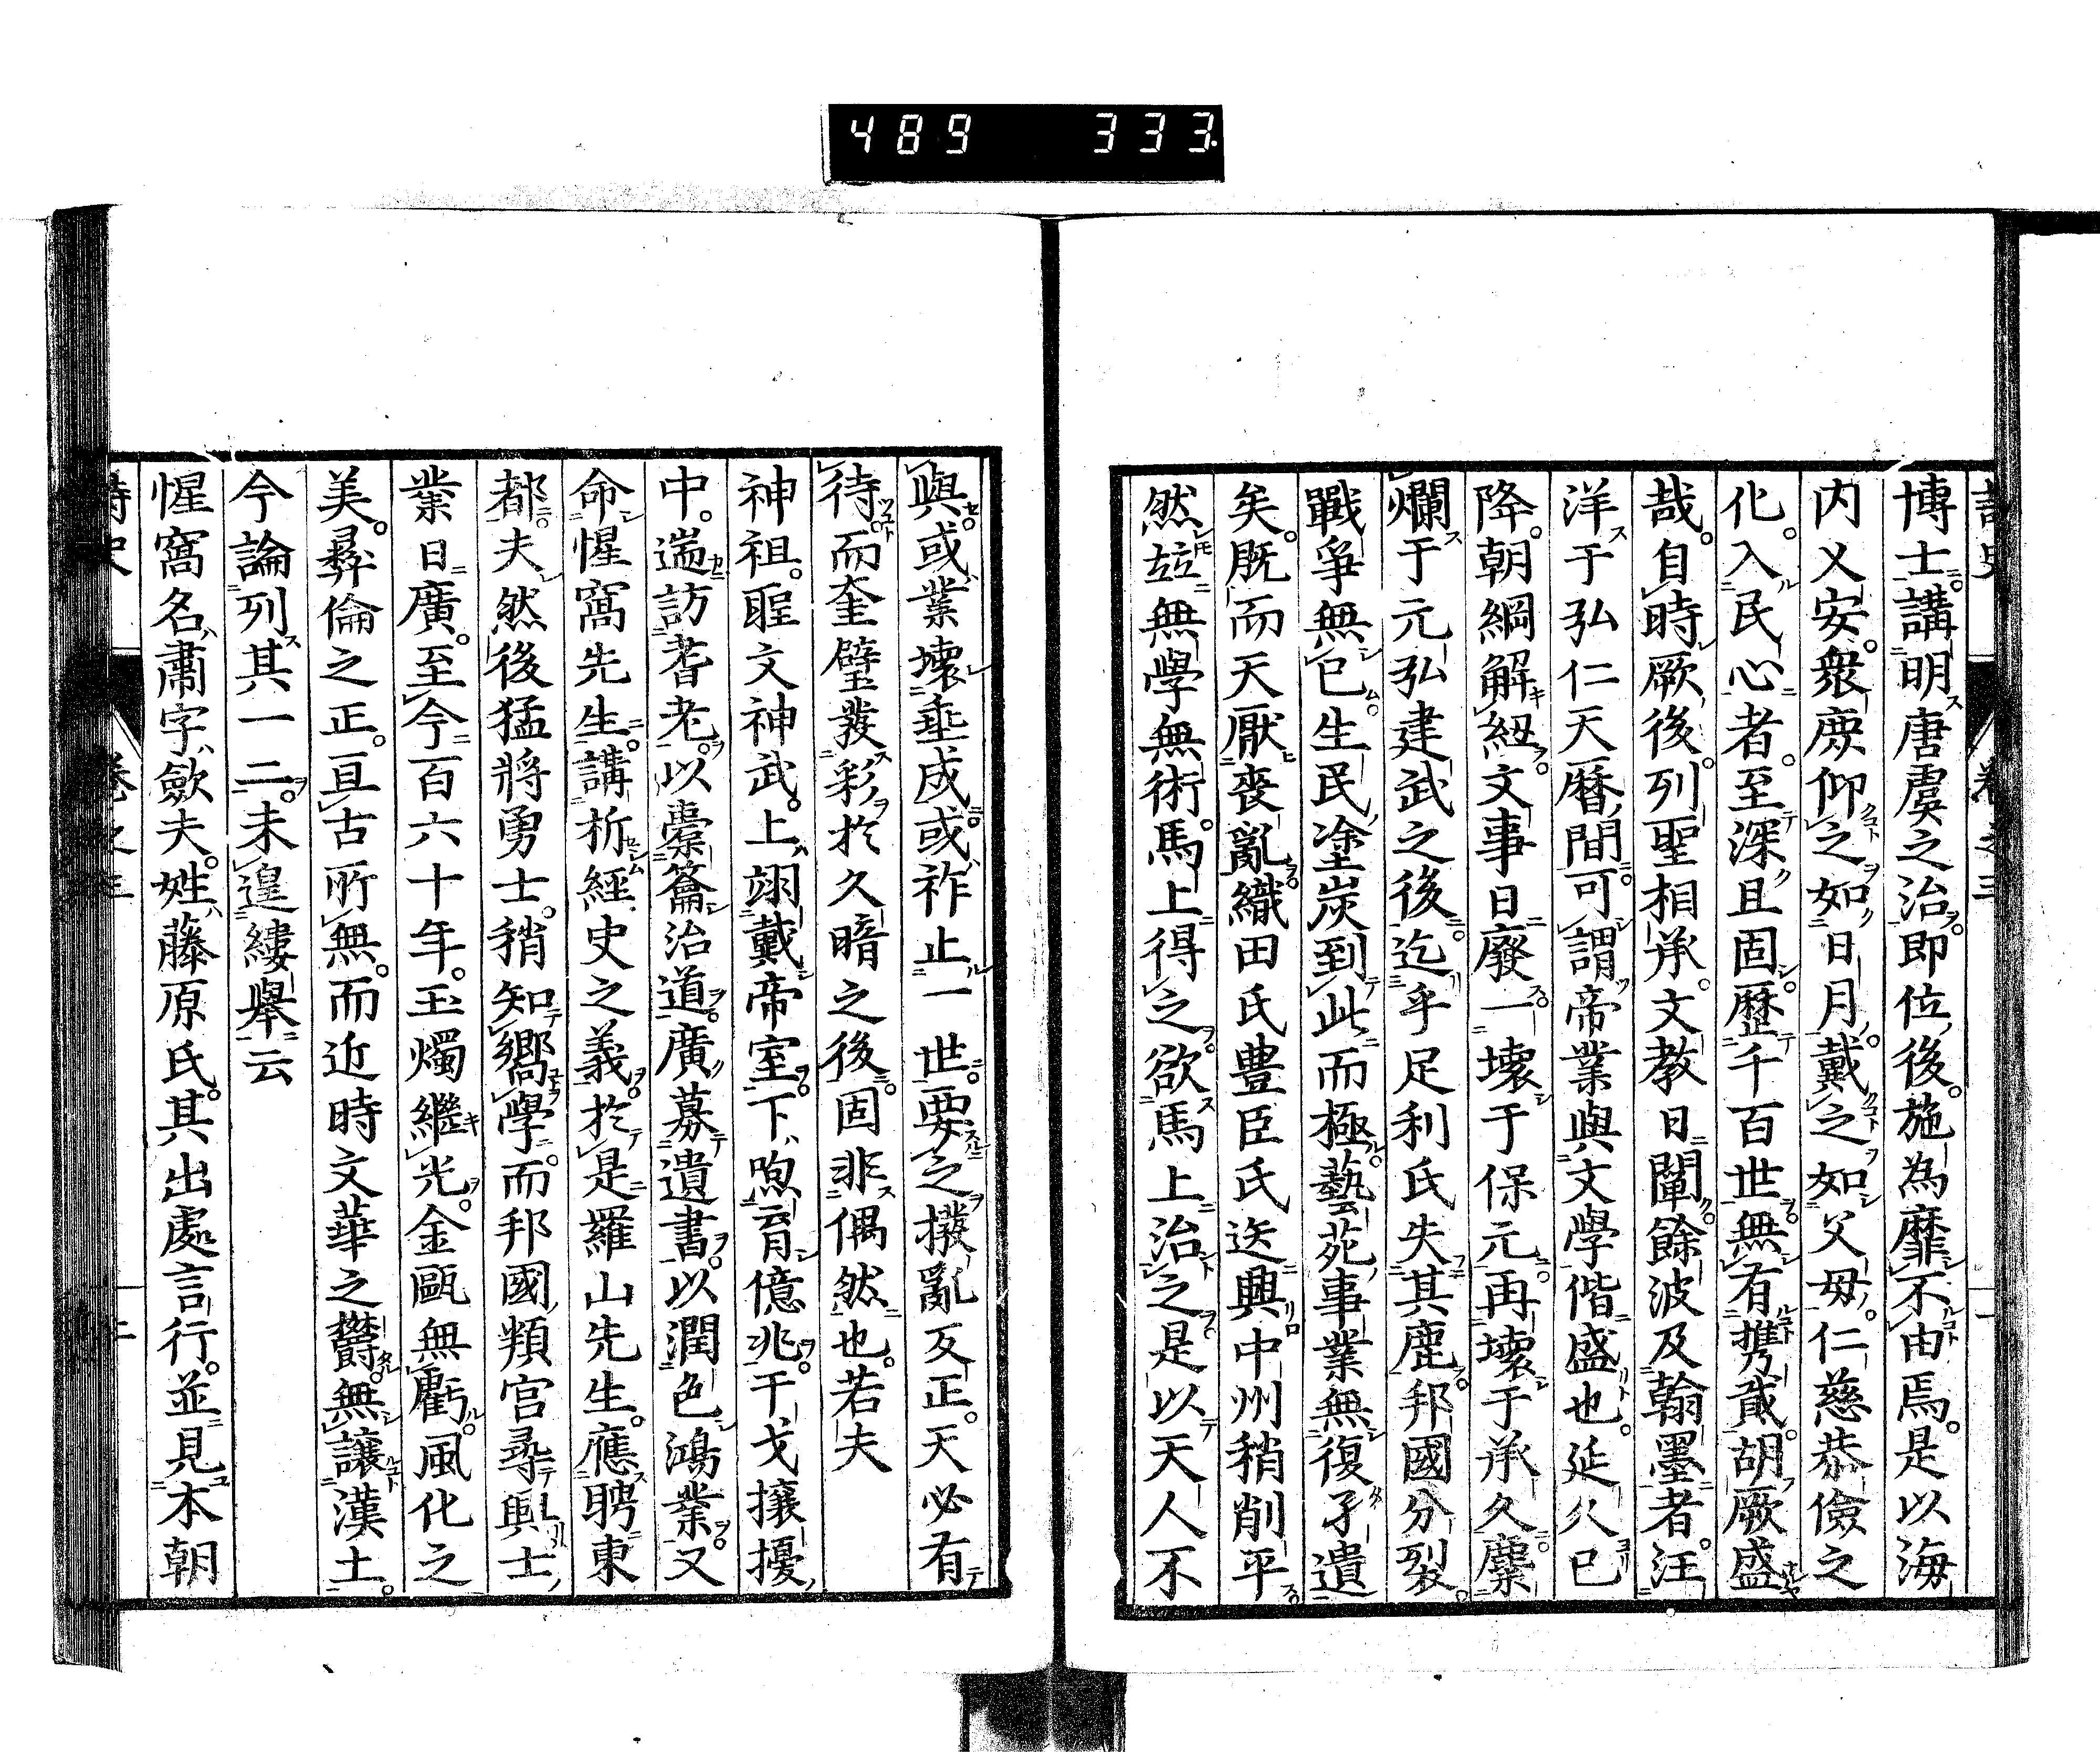 489 333
博士。講明唐虞之治。即位後。施為靡不由焉。是以海
内乂安。衆庶仰之如日月。戴之如父母。仁慈恭儉之
化。入民心者。至深且固。歷千百世。無有攜貳。胡厥盛
哉。自時厥後。列聖相承。文教日闡。餘波及翰墨者。汪
洋于弘仁天曆間。可謂帝業與文學偕盛也。延久已
降。朝綱解紐。文事日廢。一壞于保元。再壞于承久。麋
爛于元弘建武之後。迄乎足利氏失其鹿。邦國分裂。
戰爭無已。生民塗炭到此而極。藝苑事業無復孑遺
矣。既而天厭喪亂。織田氏豊臣氏迭興。中州稍削平。
然竝無學無術。馬上得之。欲馬上治之。是以天人不
與。或業壞垂成。或祚止一世。要之撥亂反正。天必有
待。而奎璧發彩於久暗之後。固非偶然也。若夫
神祖。聖文神武。上翊戴帝室。下煦育億兆。干戈攘擾
中。遄訪耆老。以橐籥治道。廣募遺書。以潤色鴻業。又
命惺窩先生。講析經史之義。於是羅山先生。應聘東
都。夫然後猛將勇士。稍知嚮學。而邦國頖宮尋興。士
業日廣。至今一百六十年。玉燭繼光。金甌無虧。風化之
美。彝倫之正。亘古所無。而近時文華之欝。無讓漢土。
今論列其一二。未遑縷舉云
惺窩名肅。字歛夫。姓藤原氏。其出處言行。並見本朝
詩史 卷之三 二